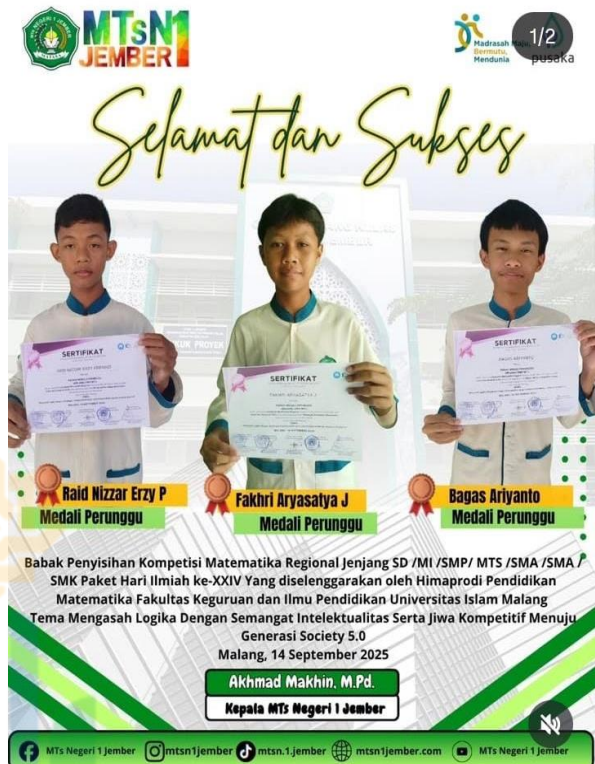 MTsN1
JEMBER
Madrasah Maju,
Bermutu,
Mendunia
1/2
pusaka
Selamat dan Sukses
SERTIFIKAT
SERTIFIKAT
SERTIFIKAT
Raid Nizzar Erzy P
Medali Perunggu
Fakhri Aryasatya J
Medali Perunggu
Bagas Ariyanto
Medali Perunggu
Babak Penyisihan Kompetisi Matematika Regional Jenjang SD /MI /SMP/ MTS /SMA /SMA /
SMK Paket Hari Ilmiah ke-XXIV Yang diselenggarakan oleh Himaprodi Pendidikan
Matematika Fakultas Keguruan dan Ilmu Pendidikan Universitas Islam Malang
Tema Mengasah Logika Dengan Semangat Intelektualitas Serta Jiwa Kompetitif Menuju
Generasi Society 5.0
Malang, 14 September 2025
Akhmad Makhin, M.Pd.
Kepala MTs Negeri 1 Jember
MTs Negeri 1 Jember mtsn1jember mtsn.1.jember mtsn1jember.com MTs Negeri 1 Jember